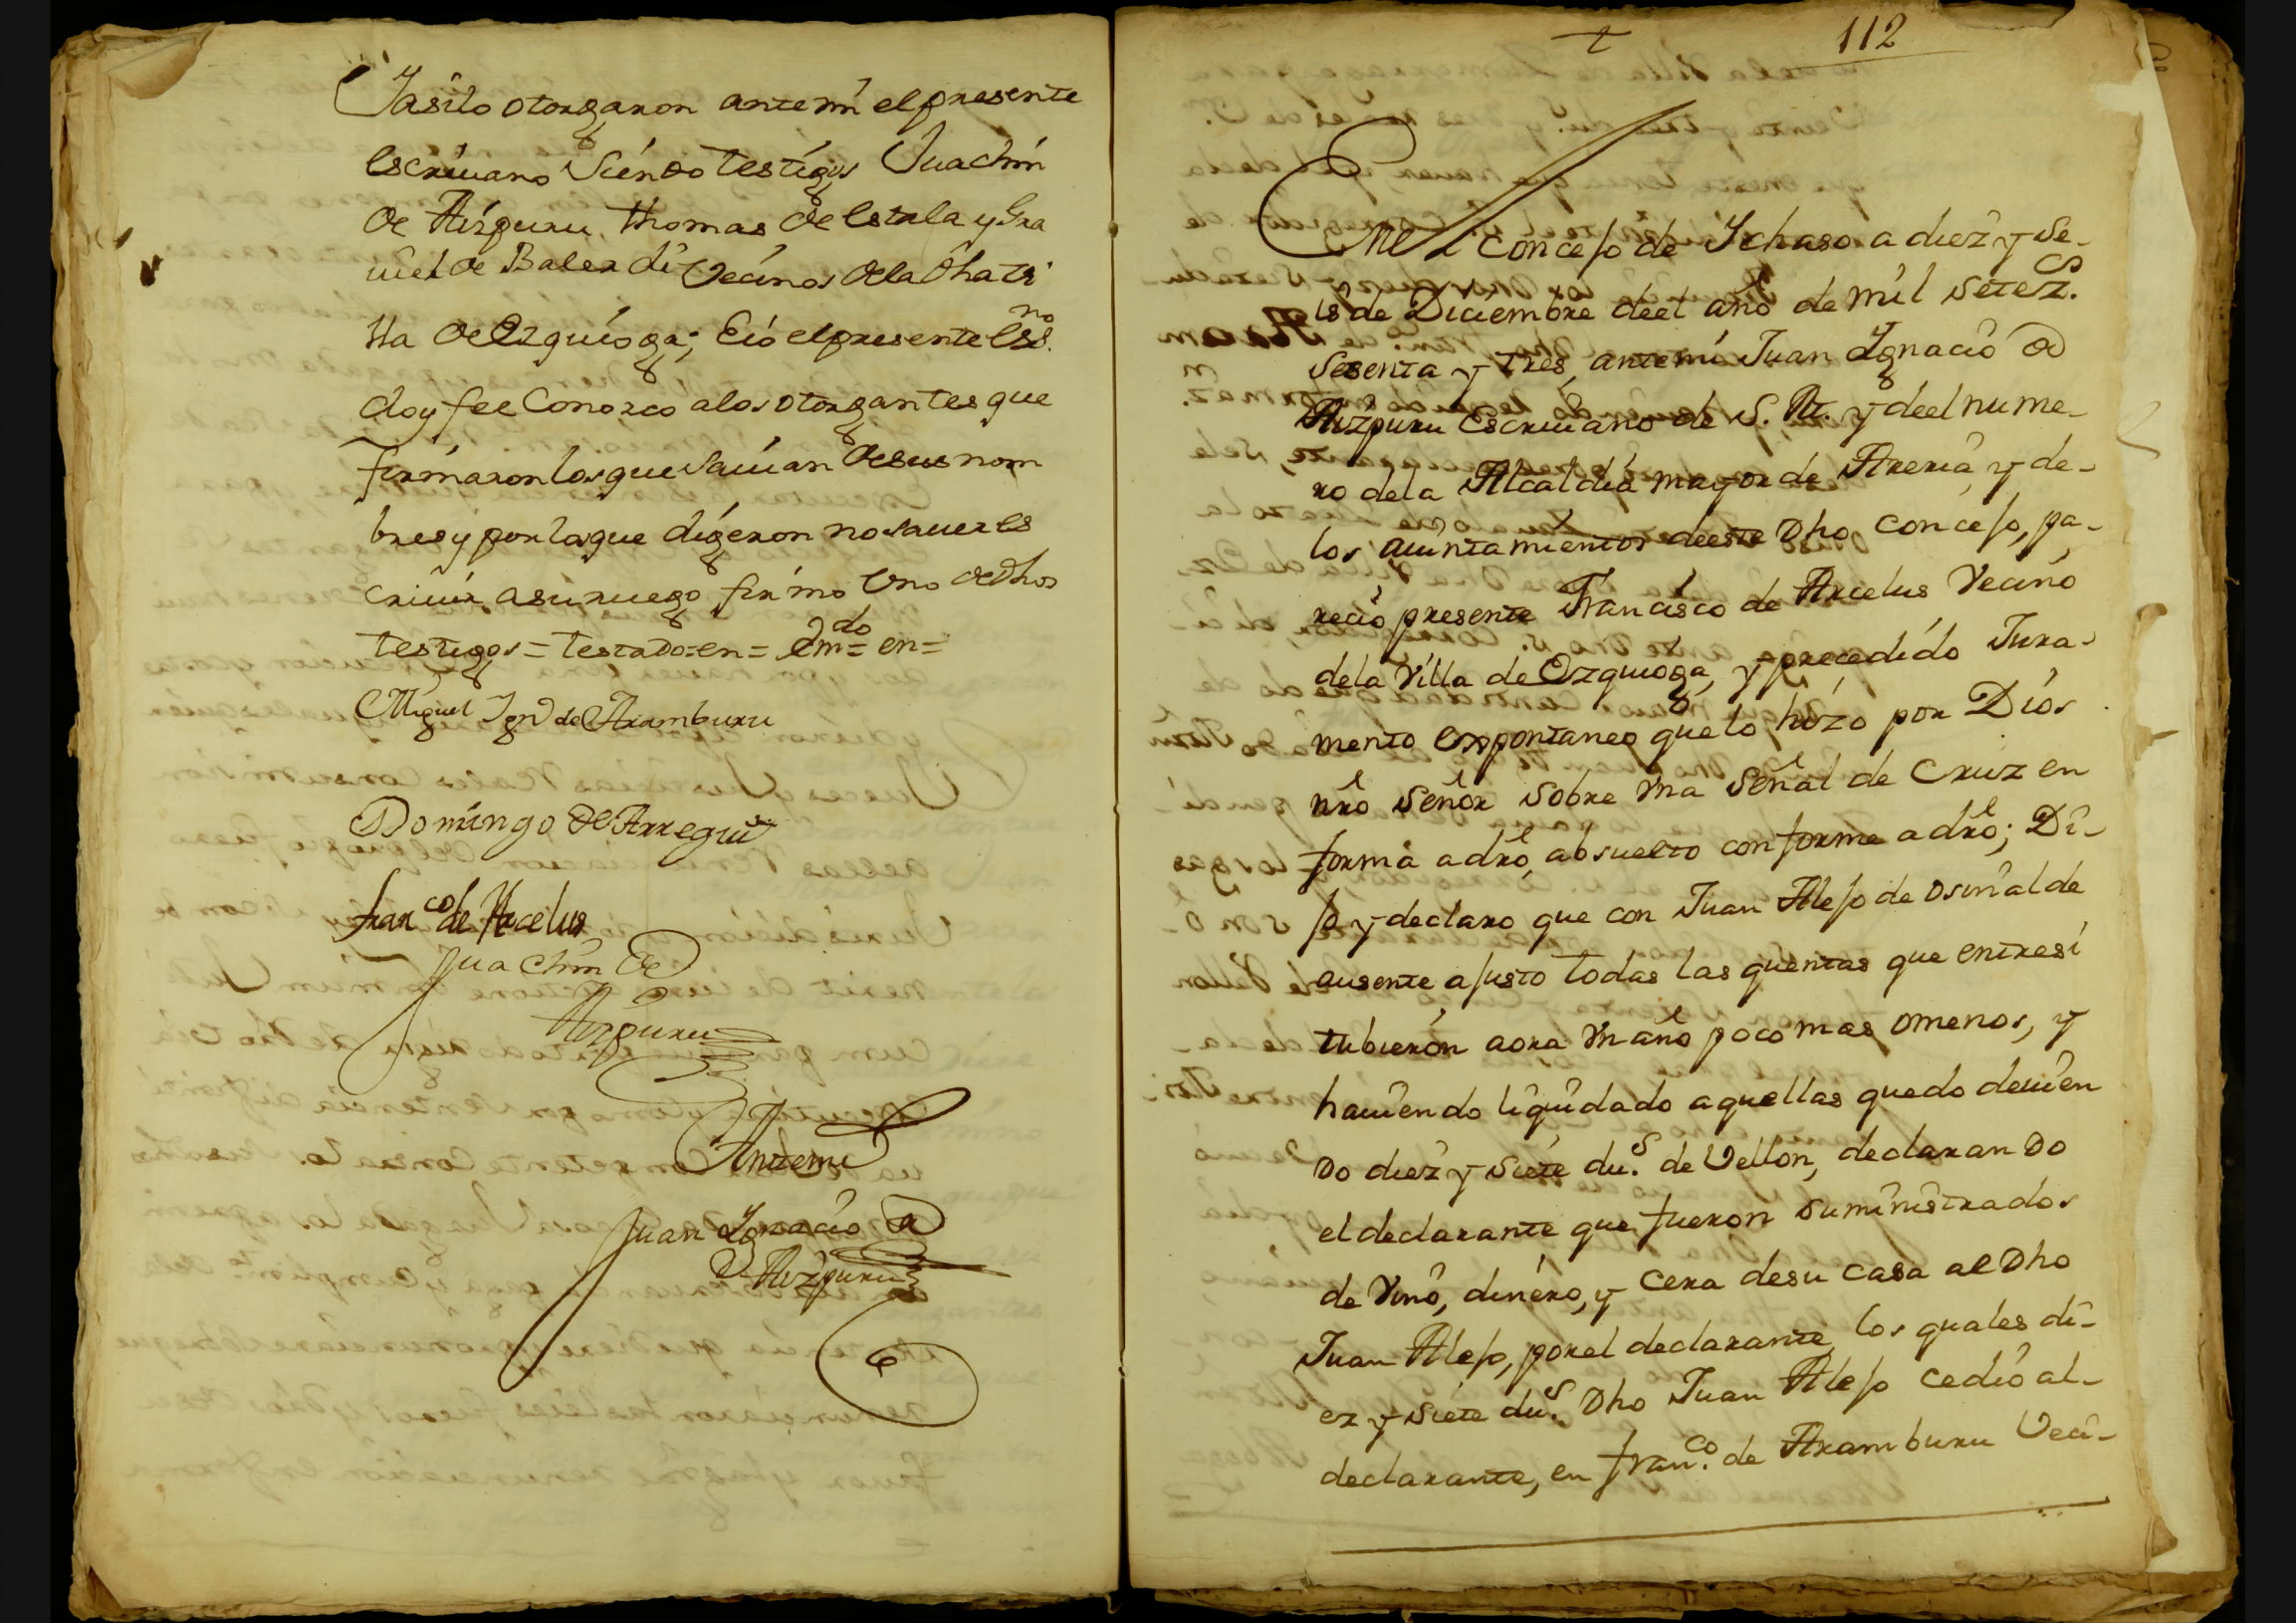 Y asilo otorgaron antemi el presente
escriuano siendo testigos Juachin
de Aizpuru, thomas de estala y Gra
uiel de Balerdi Vecinos dela dha Vi
lla de Ezquioga; E io el presente ess.no
doy fee Conozco a los otorgantes que
firmaron los que sauian de sus nom
bres y por los que digeron no sauer es
criuir asu ruego firmo Uno de dhos
testigos = testado = en = em.do = en =
Miguel Ign.o de Aramburu
Domingo de Arregui
fran.co de Arcelus
Juachin de
Aizpuru
Antemi
Juan Ignacio de
Aizpuru
112
En el Concejo de Ichaso a diez y se-
is de Diciembre deel año de mil setez.s
sesenta y tres, antemi Juan Ignacio de
Aizpuru Escriuano de S. M. y deel nume-
ro dela Alcaldia mayor de Areria, y de-
los aiuntamientos deeste dho Concejo, pa-
recio presente Francisco de Arcelus Vecino
dela Villa de Ezquioga, y precedido Jura-
mento expontaneo que lo hizo por Dios
nro señor sobre Vna señal de Cruz en
forma a dro, absuelto conforme a dro; Di-
jo y declaro que con Juan Alejo de Osinalde
ausente ajusto todas las quentas que entresi
tubieron aora Vn año poco mas omenos, y
hauiendo liquidado aquellas quedo deuien
do diez y siete du.s de Vellon, declarando
el declarante que fueron suministrados
de Vino, dinero, y cera desu casa al dho
Juan Alejo, porel declarante, los quales di-
ez y siete du.s dho Juan Alejo cedio al-
declarante, en fran.co de Aramburu Veci-